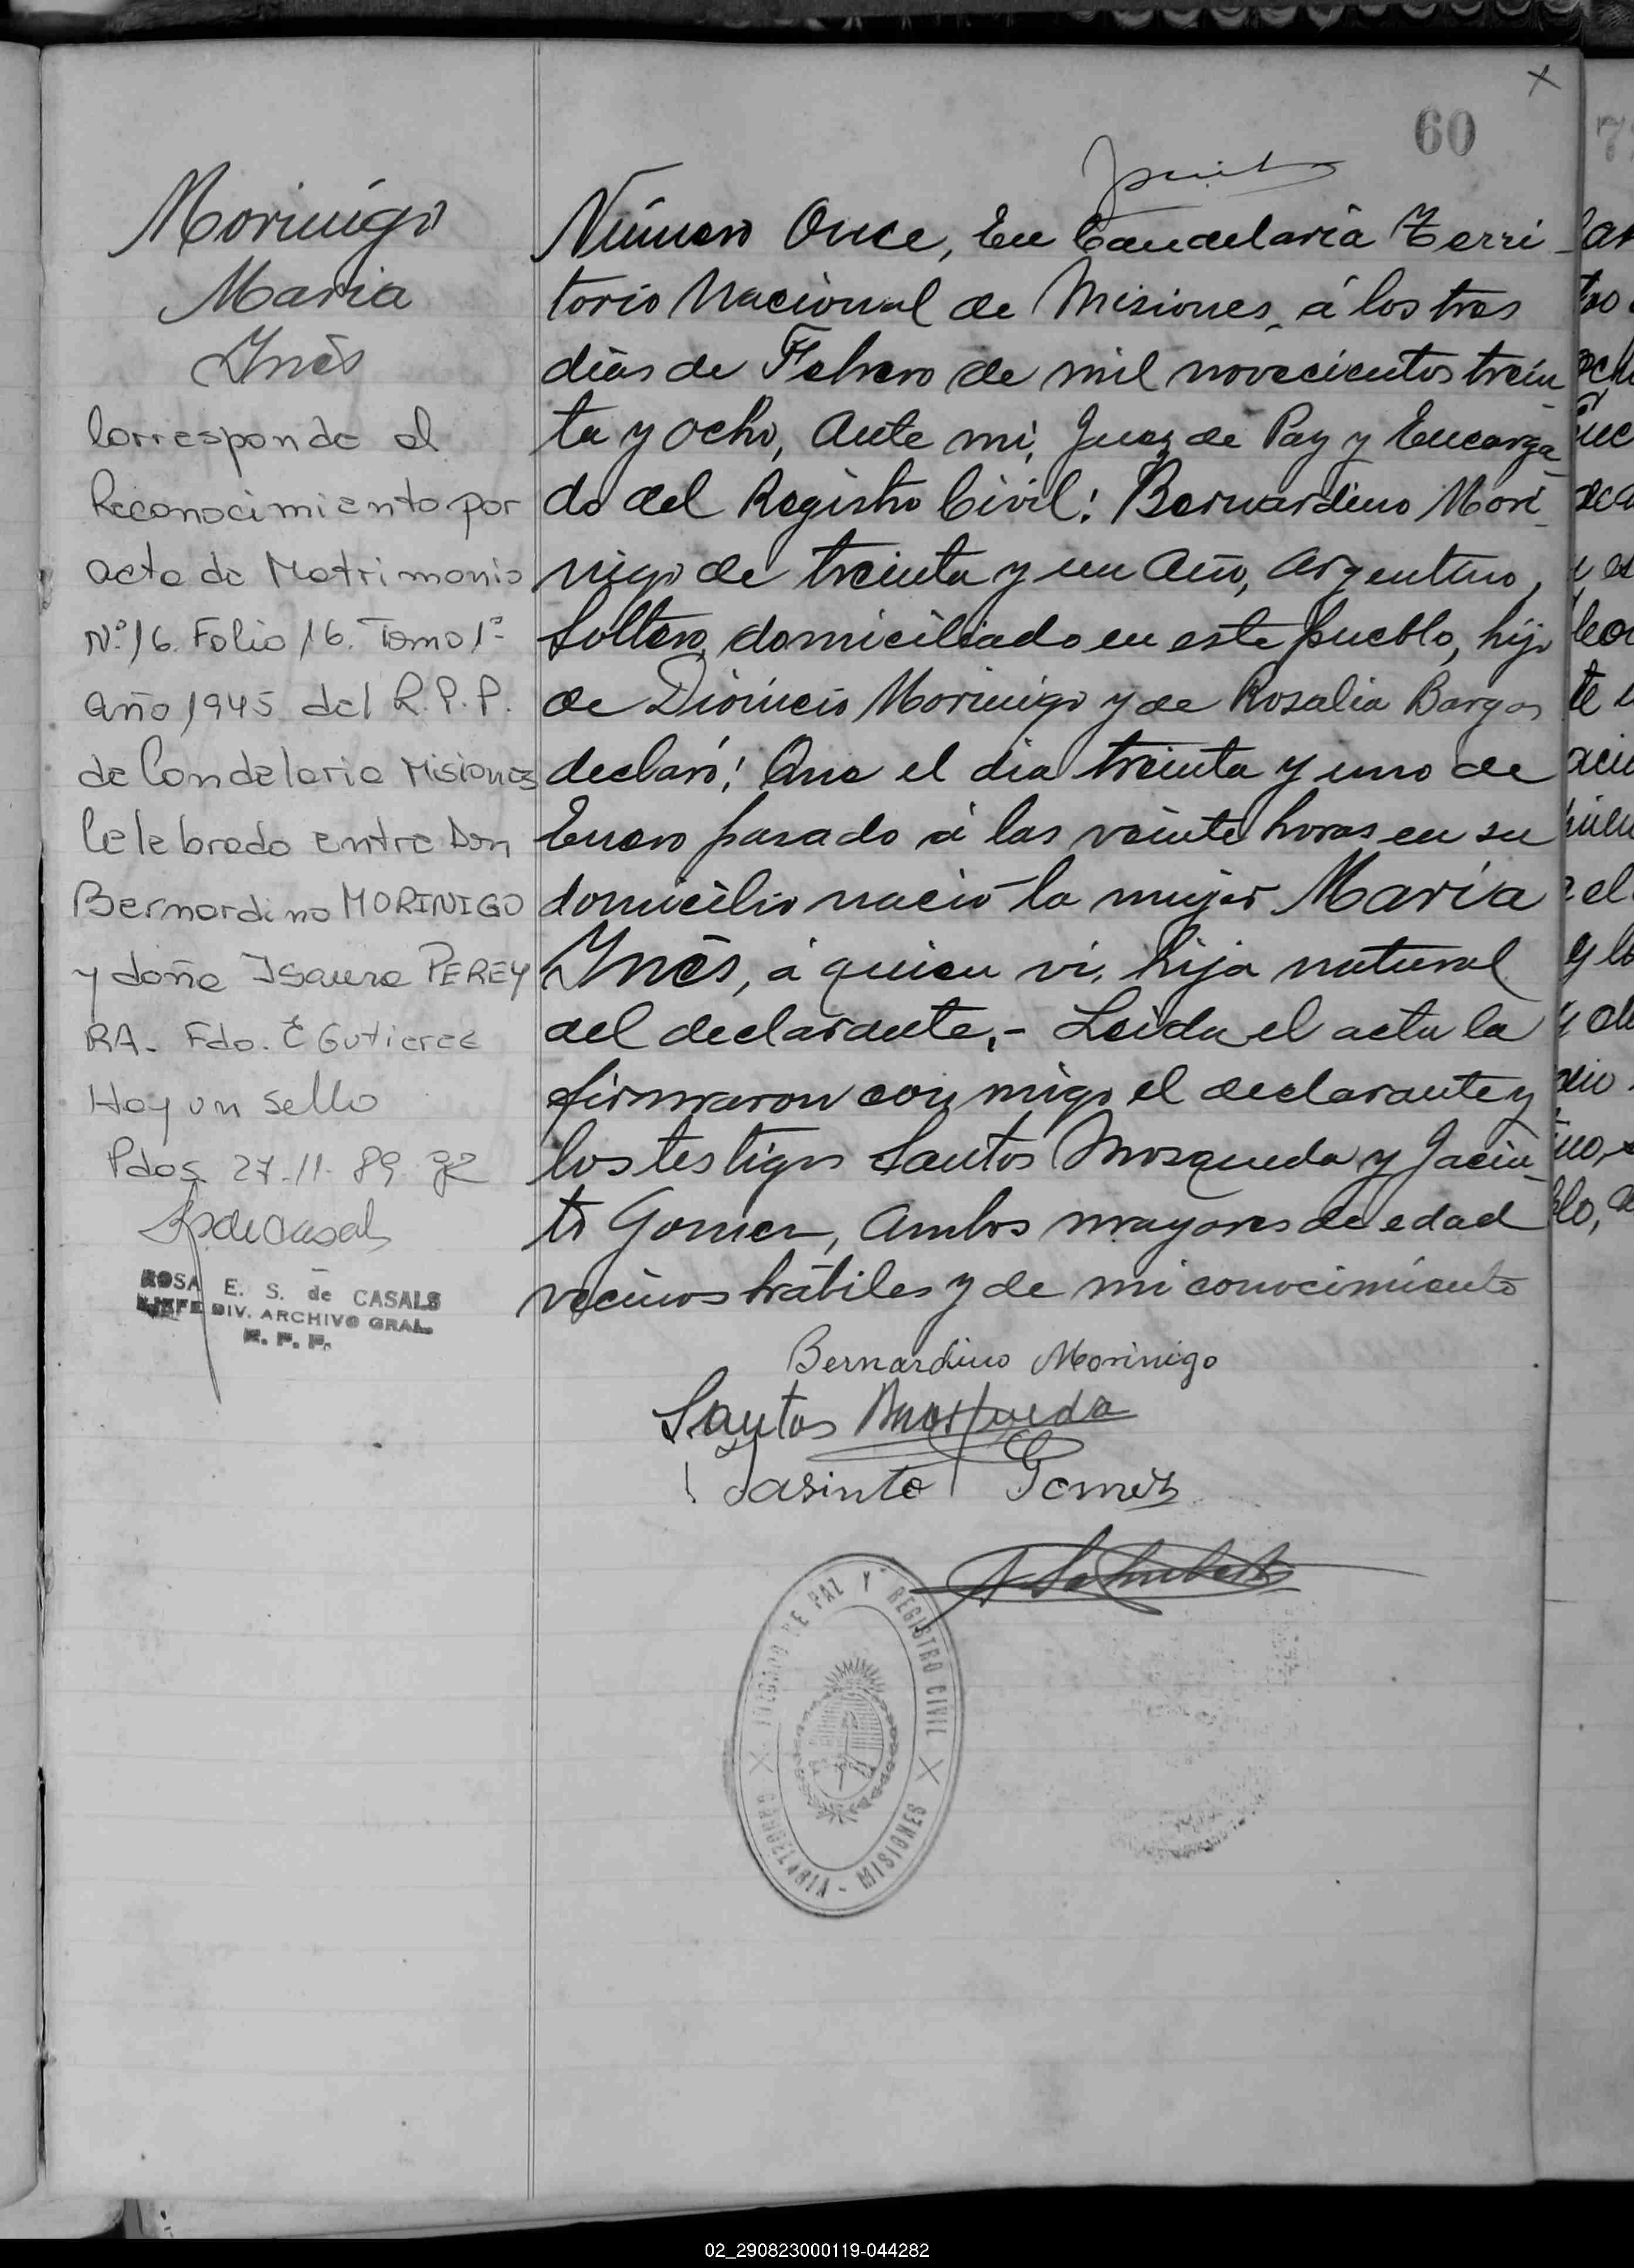 60
Morinigo
Maria
Inés
Corresponde al
Reconocimiento por
acta de Matrimonio
Nº 16. Folio 16. Tomo 1º
año 1945 del R.P.P.
de Candelaria Misiones
Celebrado entre Don
Bernardino MORINIGO
y doña Isaura PEREY
RA. Fdo. E Gutierrez
Hay un sello
Pdas. 27-11-89
ROSA E. S. de CASALS
JEFE DIV. ARCHIVO GRAL.
R. P. P.
Número Once, En Candelaria Terri-
torio Nacional de Misiones, á los tres
dias de Febrero de mil novecientos trein-
ta y ocho, Ante mi, Juez de Paz y Encarga-
do del Registro Civil: Bernardino Mori-
nigo de treinta y un Año, Argentino,
Soltero, domiciliado en este pueblo, hijo
de Dionicio Morinigo y de Rosalia Bargas
declaró: Que el dia treinta y uno de
Enero pasado á las veinte horas en su
domicilio nació la mujer María
Inés, á quien vi, hija natural
del declarante,- Leida el acta la
firmaron con migo el declarante y
los testigos Santos Mosqueda y Jacin-
to Gomez, Ambos mayores de edad
vecinos hábiles y de mi conocimiento
Bernardino Morinigo
Santos Mosqueda
Jasinto Gomez
JUZGADO DE PAZ Y REGISTRO CIVIL
CANDELARIA - MISIONES
02_290823000119-044282